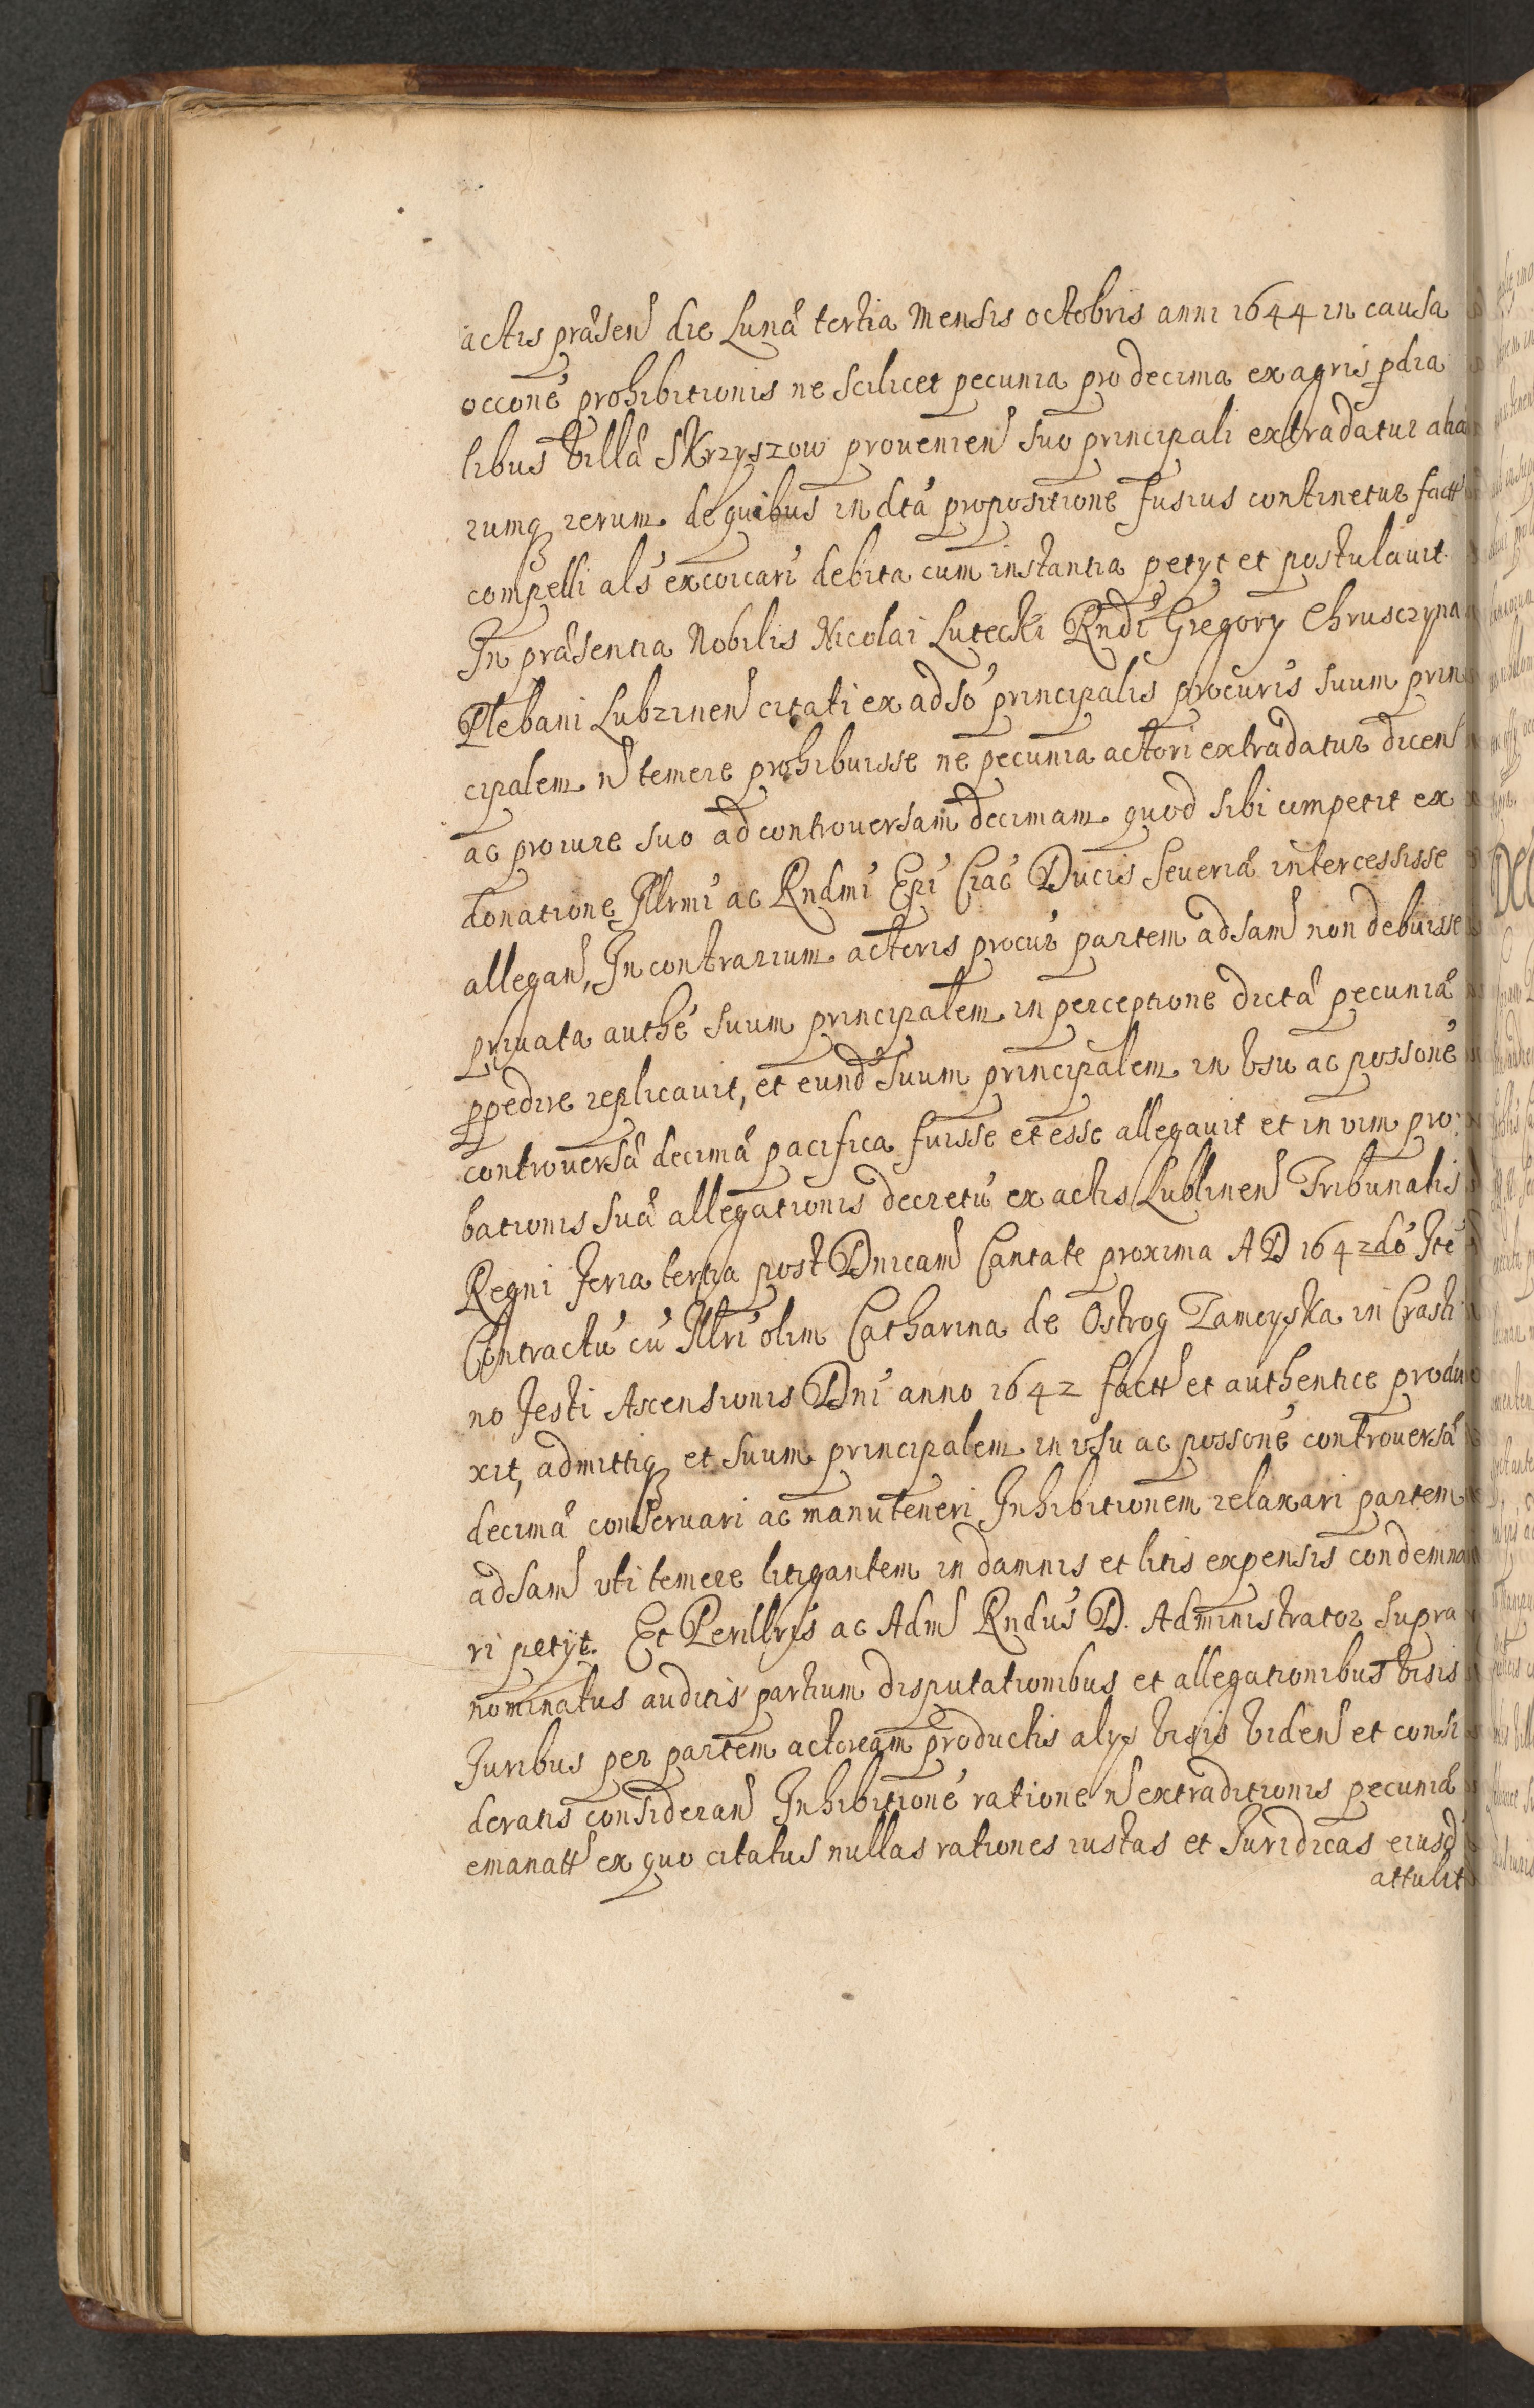 actis præsen die Lunæ tertia Mensis octobris anni 1644 in causa
occone prohibitionis ne scilicet pecunia pro decima ex agris pdia
libus villæ Skrzyszow prouenien suo principali extradatur alia
rumq rerum de quibus in dta propositione fusius continetur fact
compelli als excoicari debita cum instantia petyt et postulauit
In præsentia Nobilis Nicolai Lutecki Rndi Gregory Chrusczyna
Plebani Lubzinen citati ex adso principalis procuris suum prin
cipalem n temere prohibuisse ne pecunia actori extradatur dicen
ac pro iure suo ad controuersam decimam quod sibi competit ex
donatione Illrmi ac Rndmi Epi Crac Ducis Seueriæ intercessisse
allegan, In contrarium actoris procur partem adsam non debuisse
priuata authe suum principalem in perceptione dictæ pecuniæ
ppedire replicauit, et eund suum principalem in vsu ac possone
controuersæ decimæ pacifica fuisse et esse allegauit et in vim pro:
bationis suæ allegationis decretu ex actis Lublinen Tribunalis
Regni feria tertia post Dnicam Cantate proxima A D 1642do Ite
Contractu cu Illri olim Catharina de Ostrog Zamoyska in Crasti
no festi Ascensionis Dni anno 1642 fact et authentice produ
xit, admittiq et suum principalem in vsu ac possone controuersæ
decimæ conseruari ac manuteneri Inhibitionem relaxari partem
adsam vti temere litigantem in damnis et litis expensis condemna
ri petyt. Et Perillris ac Adm Rndus D. Administrator supra
nominatus auditis partium disputationibus et allegationibus visis
Iuribus per partem actoream productis alys visis viden et consi
deratis consideran Inhibitione ratione n extraditionis pecuniæ
emanatt ex quo citatus nullas rationes iustas et Iuridicas eiusd
attulit